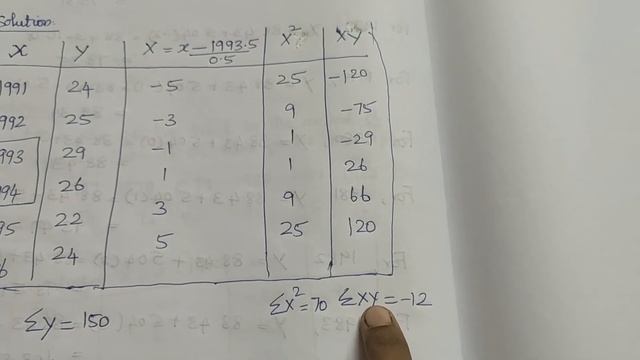 Solution
x y X = x - 1993.5 / 0.5 X² XY
1991 24 -5 25 -120
1992 25 -3 9 -75
1993 29 -1 1 -29
1994 26 1 1 26
95 22 3 9 66
6 24 5 25 120
Σy = 150 Σx² = 70 ΣXY = -12